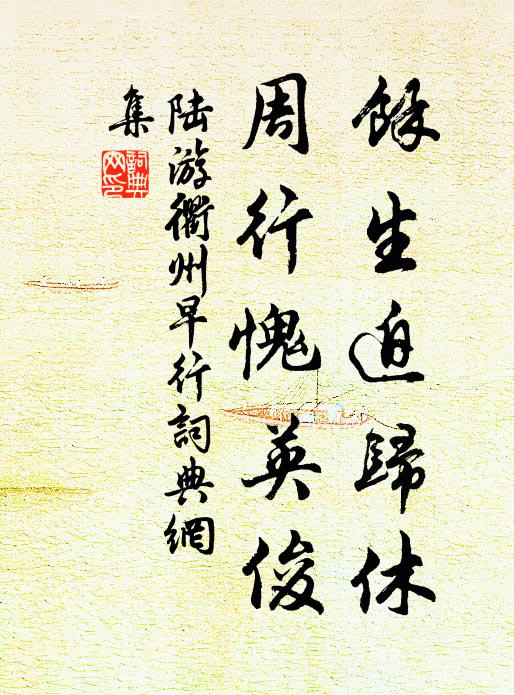 餘生迫歸休
周行愧英俊
陸游衢州早行詞典網
集
詞典網印